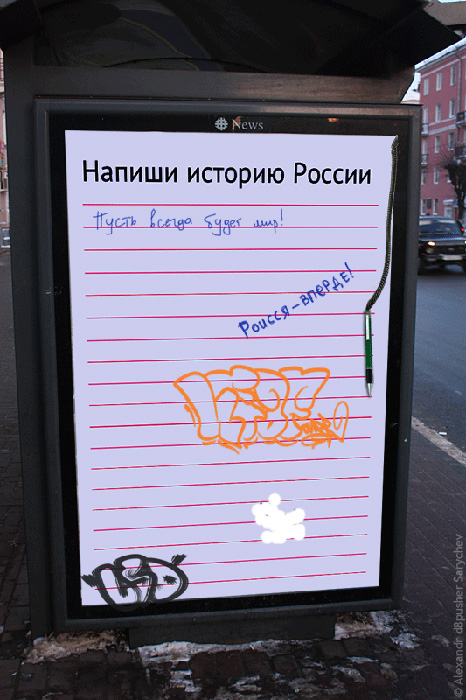 News
Напиши историю России
Пусть всегда будет мир!
Роисся-вперде!
© Alexandr d8pusher Sarychev